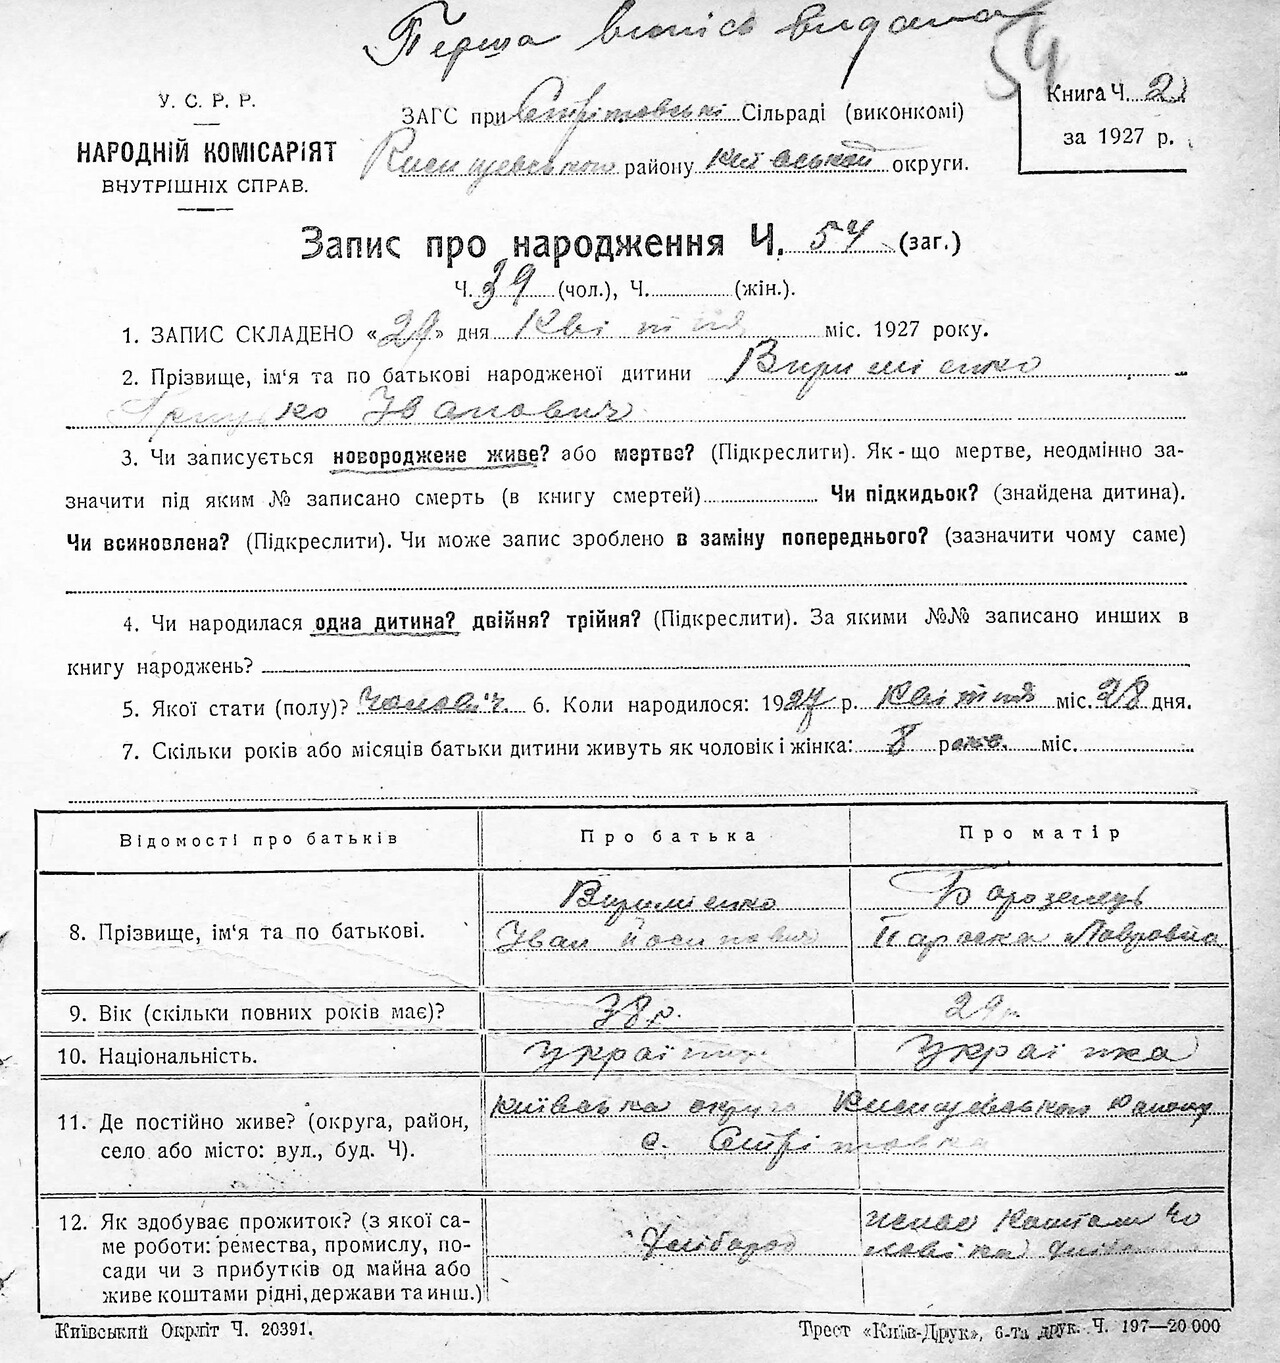 Перша випись видана
54
У. С. Р. Р.
НАРОДНІЙ КОМІСАРІЯТ
ВНУТРІШНІХ СПРАВ.
ЗАГС при Стрітовські Сільраді (виконкомі)
району Київської округи.
Книга Ч. 2
за 1927 р.
Запис про народження Ч. 54 (заг.)
Ч. 39 (чол.), Ч. (жін.).
1. ЗАПИС СКЛАДЕНО «29» дня Квітня міс. 1927 року.
2. Прізвище, ім'я та по батькові народженої дитини Виримієнко
Грицько Іванович
3. Чи записується новороджене живе? або мертве? (Підкреслити). Як-що мертве, неодмінно за-
значити під яким № записано смерть (в книгу смертей) Чи підкидьок? (знайдена дитина).
Чи всиновлена? (Підкреслити). Чи може запис зроблено в заміну попереднього? (зазначити чому саме)
4. Чи народилася одна дитина? двійня? трійня? (Підкреслити). За якими №№ записано инших в
книгу народжень?
5. Якої стати (полу)? чоловіч. 6. Коли народилося: 1927 р. Квітня міс. 28 дня.
7. Скільки років або місяців батьки дитини живуть як чоловік і жінка: 8 років. міс.
Відомості про батьків Про батька Про матір
8. Прізвище, ім'я та по батькові. Виримієнко
Іван Йосипович Параска Лавровна
9. Вік (скільки повних років має)? 38 р. 29 р.
10. Національність. Українець Українка
11. Де постійно живе? (округа, район, Київська округа району
село або місто: вул., буд. Ч). с. Стрітовка
12. Як здобуває прожиток? (з якої са- живе Коштам чо
ме роботи: ремества, промислу, по- Хлібороб ловіка хлібороба
сади чи з прибутків од майна або
живе коштами рідні, держави та инш.)
Київський Окрліт Ч. 20391.
Трест «Київ-Друк», 6-та друк. Ч. 197—20 000